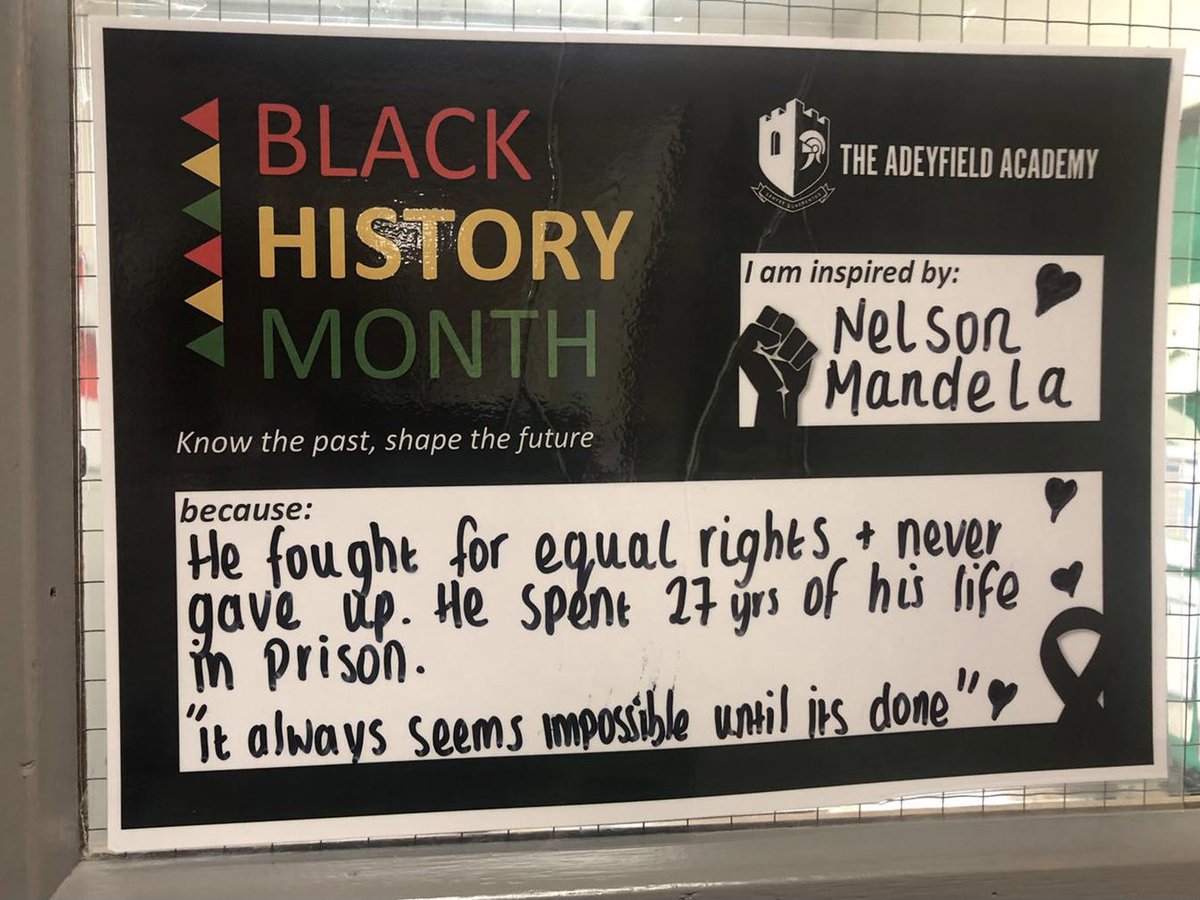 BLACK
HISTORY
MONTH
Know the past, shape the future
THE ADEYFIELD ACADEMY
I am inspired by:
Nelson
Mandela
because:
He fought for equal rights + never
gave up. He spent 27 yrs of his life
in prison.
"it always seems impossible until its done"